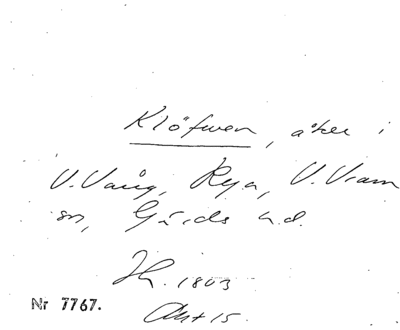 Klöfwen, åker i
V. Vång, Rya, V. Vram
sn, Gärds hd.
1803
Akt 15.
Nr 7767.